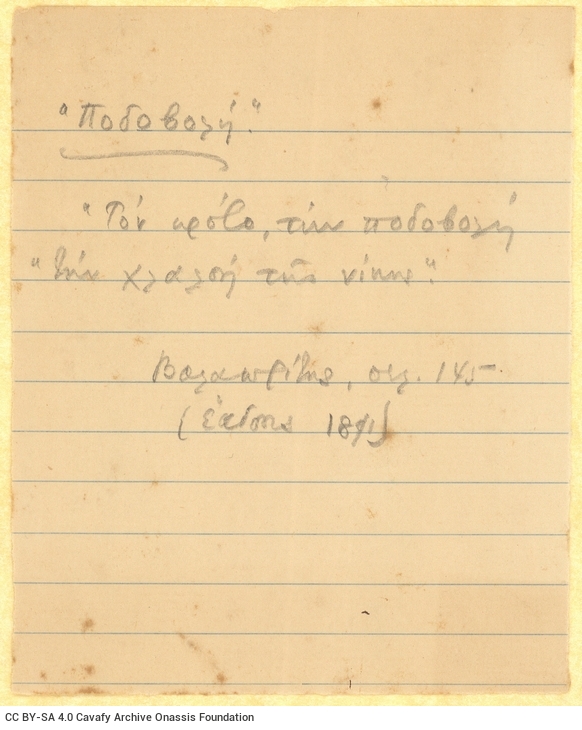 "Ποδοβολή"
"Τον κρότο, την ποδοβολή
"την χλαλοή της νίκης".
Βαλαωρίτης, σελ. 145
(Έκδοσις 1891)
CC BY-SA 4.0 Cavafy Archive Onassis Foundation